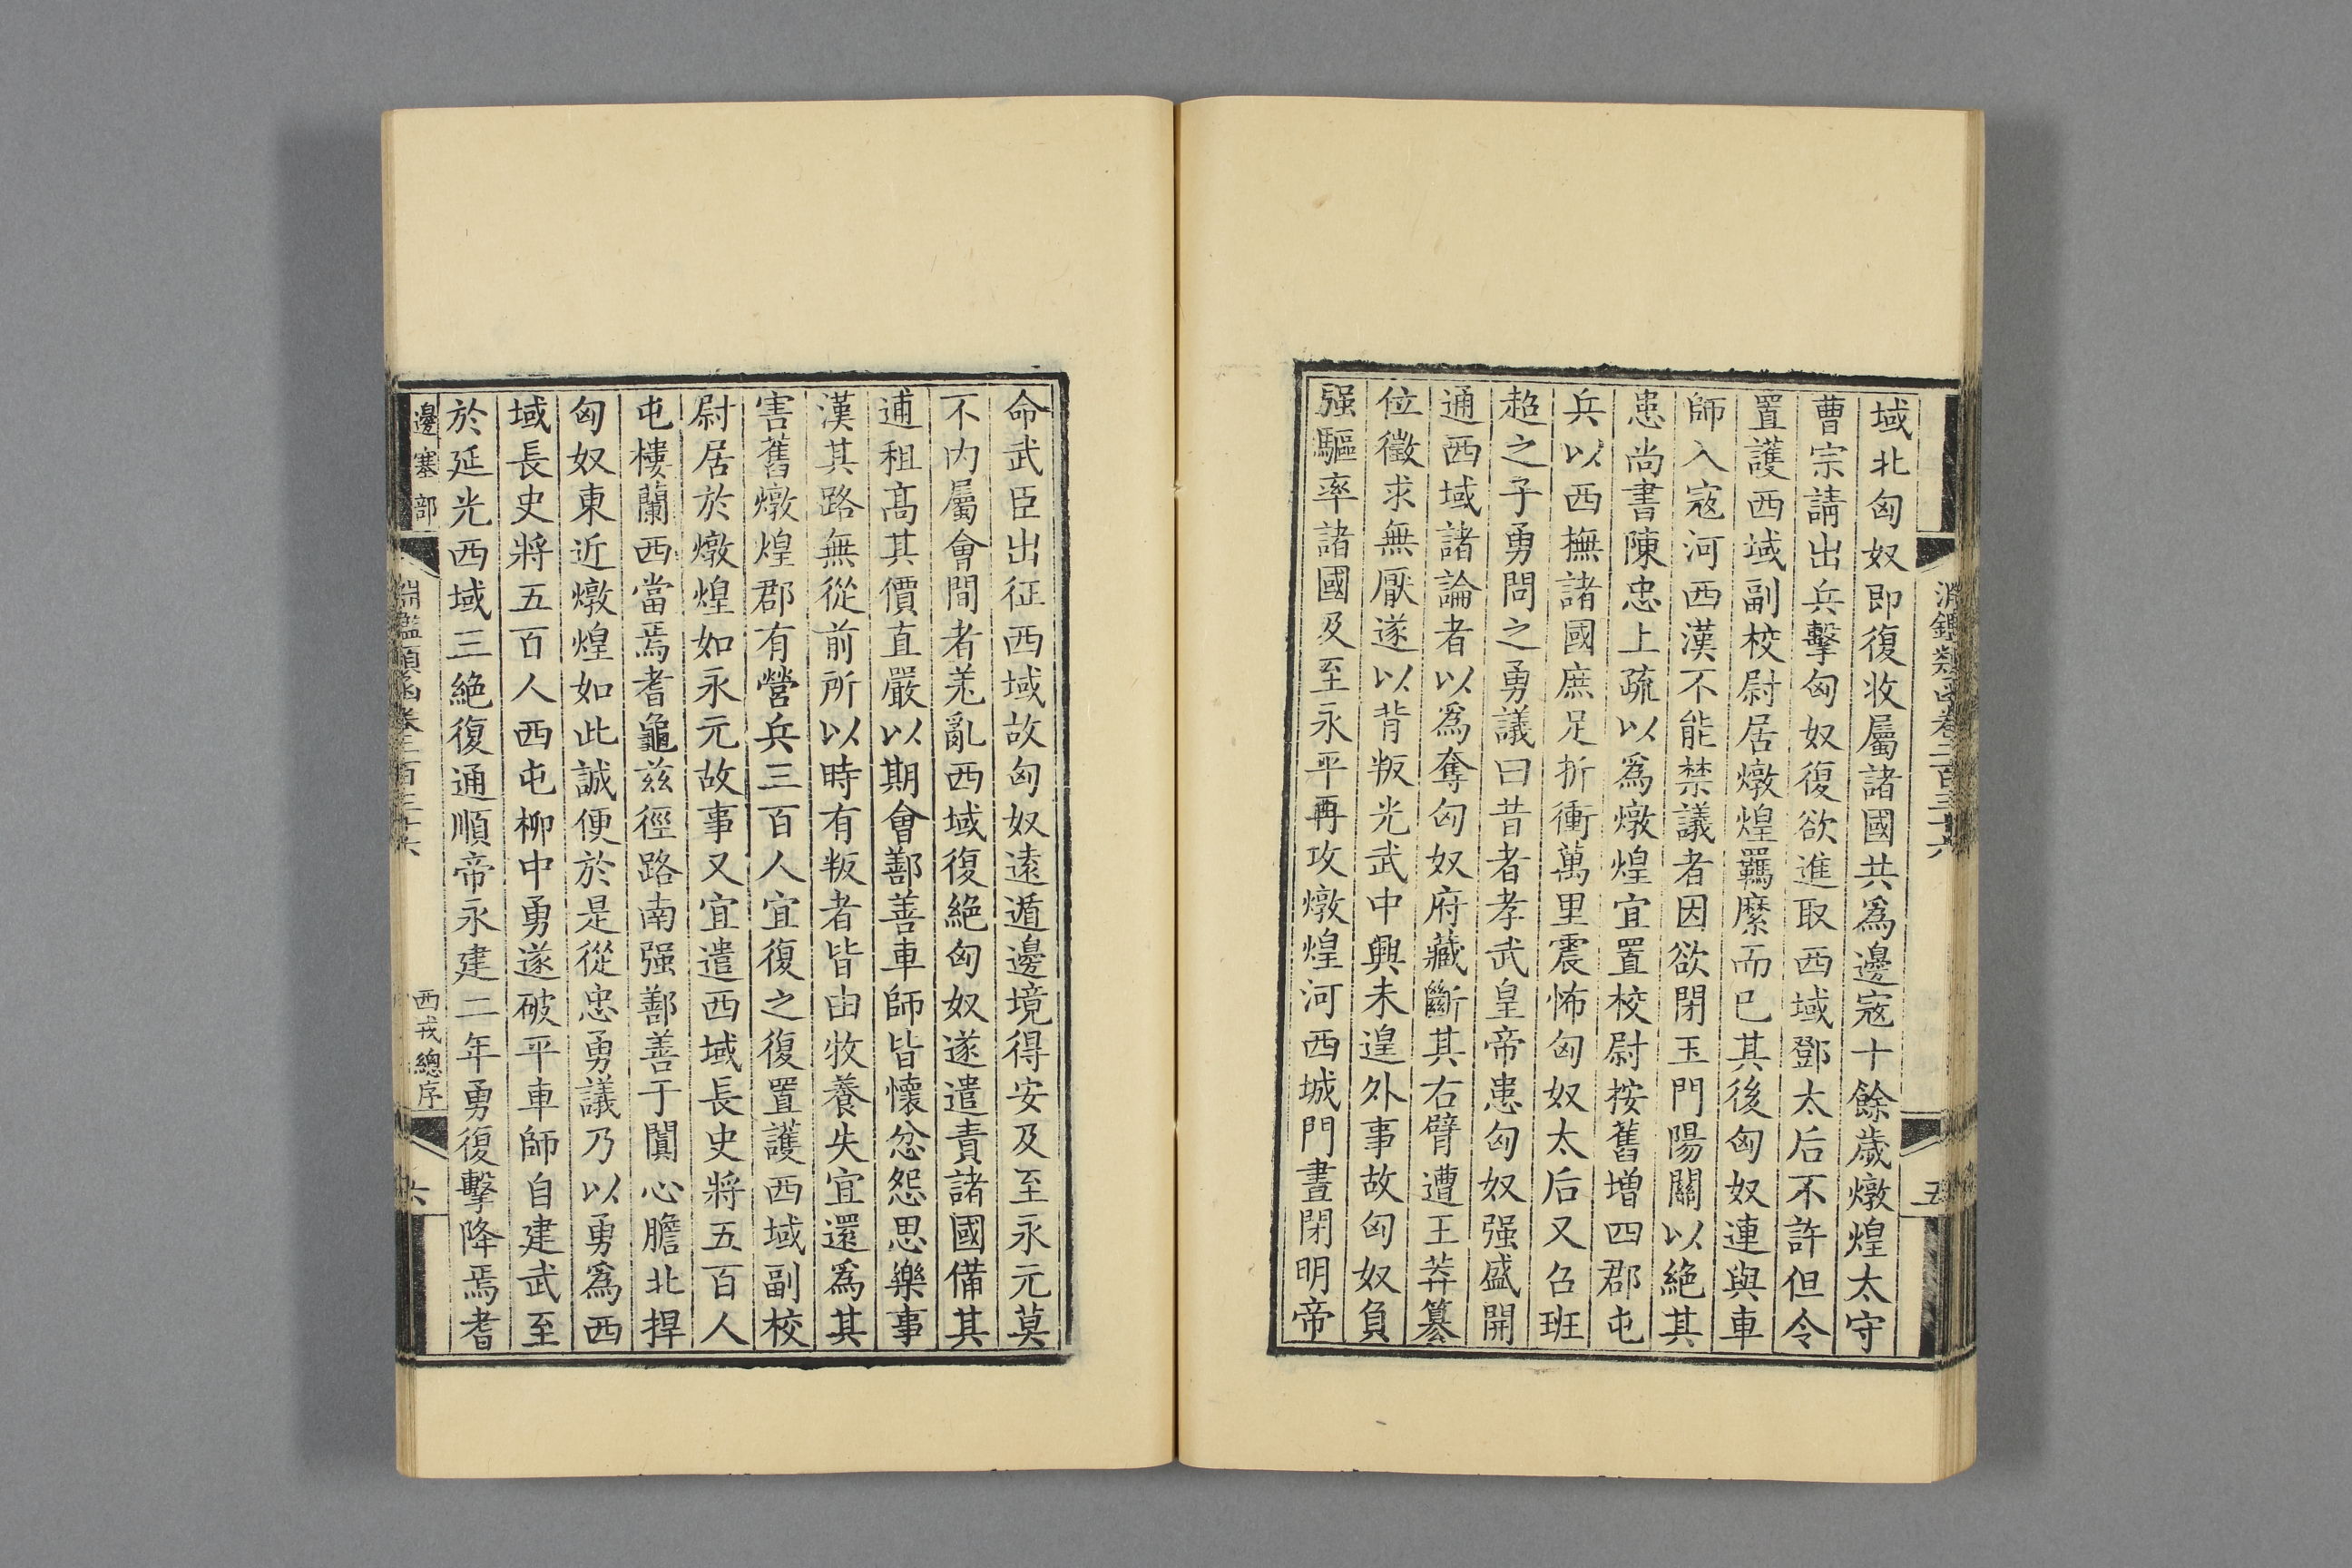 淵鑑類函卷二百三十六
五
域北匈奴即復收屬諸國共爲邊寇十餘歲燉煌太守
曹宗請出兵擊匈奴復欲進取西域鄧太后不許但令
置護西域副校尉居燉煌羈縻而已其後匈奴連與車
師入寇河西漢不能禁議者因欲閉玉門陽關以絶其
患尚書陳忠上疏以爲燉煌宜置校尉按舊增四郡屯
兵以西撫諸國庶足折衝萬里震怖匈奴太后又召班
超之子勇問之勇議曰昔者孝武皇帝患匈奴强盛開
通西域諸論者以爲奪匈奴府藏斷其右臂遭王莽簒
位徵求無厭遂以背叛光武中興未遑外事故匈奴負
强驅率諸國及至永平再攻燉煌河西城門晝閉明帝
命武臣出征西域故匈奴遠遁邊境得安及至永元莫
不内屬會間者羌亂西域復絶匈奴遂遣責諸國備其
逋租高其價直嚴以期會鄯善車師皆懷忿怨思樂事
漢其路無從前所以時有叛者皆由牧養失宜還爲其
害舊燉煌郡有營兵三百人宜復之復置護西域副校
尉居於燉煌如永元故事又宜遣西域長史將五百人
屯樓蘭西當焉耆龜兹徑路南强鄯善于闐心膽北捍
匈奴東近燉煌如此誠便於是從忠勇議乃以勇爲西
域長史將五百人西屯柳中勇遂破平車師自建武至
於延光西域三絶復通順帝永建二年勇復擊降焉耆
邊塞部
淵鑑類函卷二百三十六
西戎總序
六